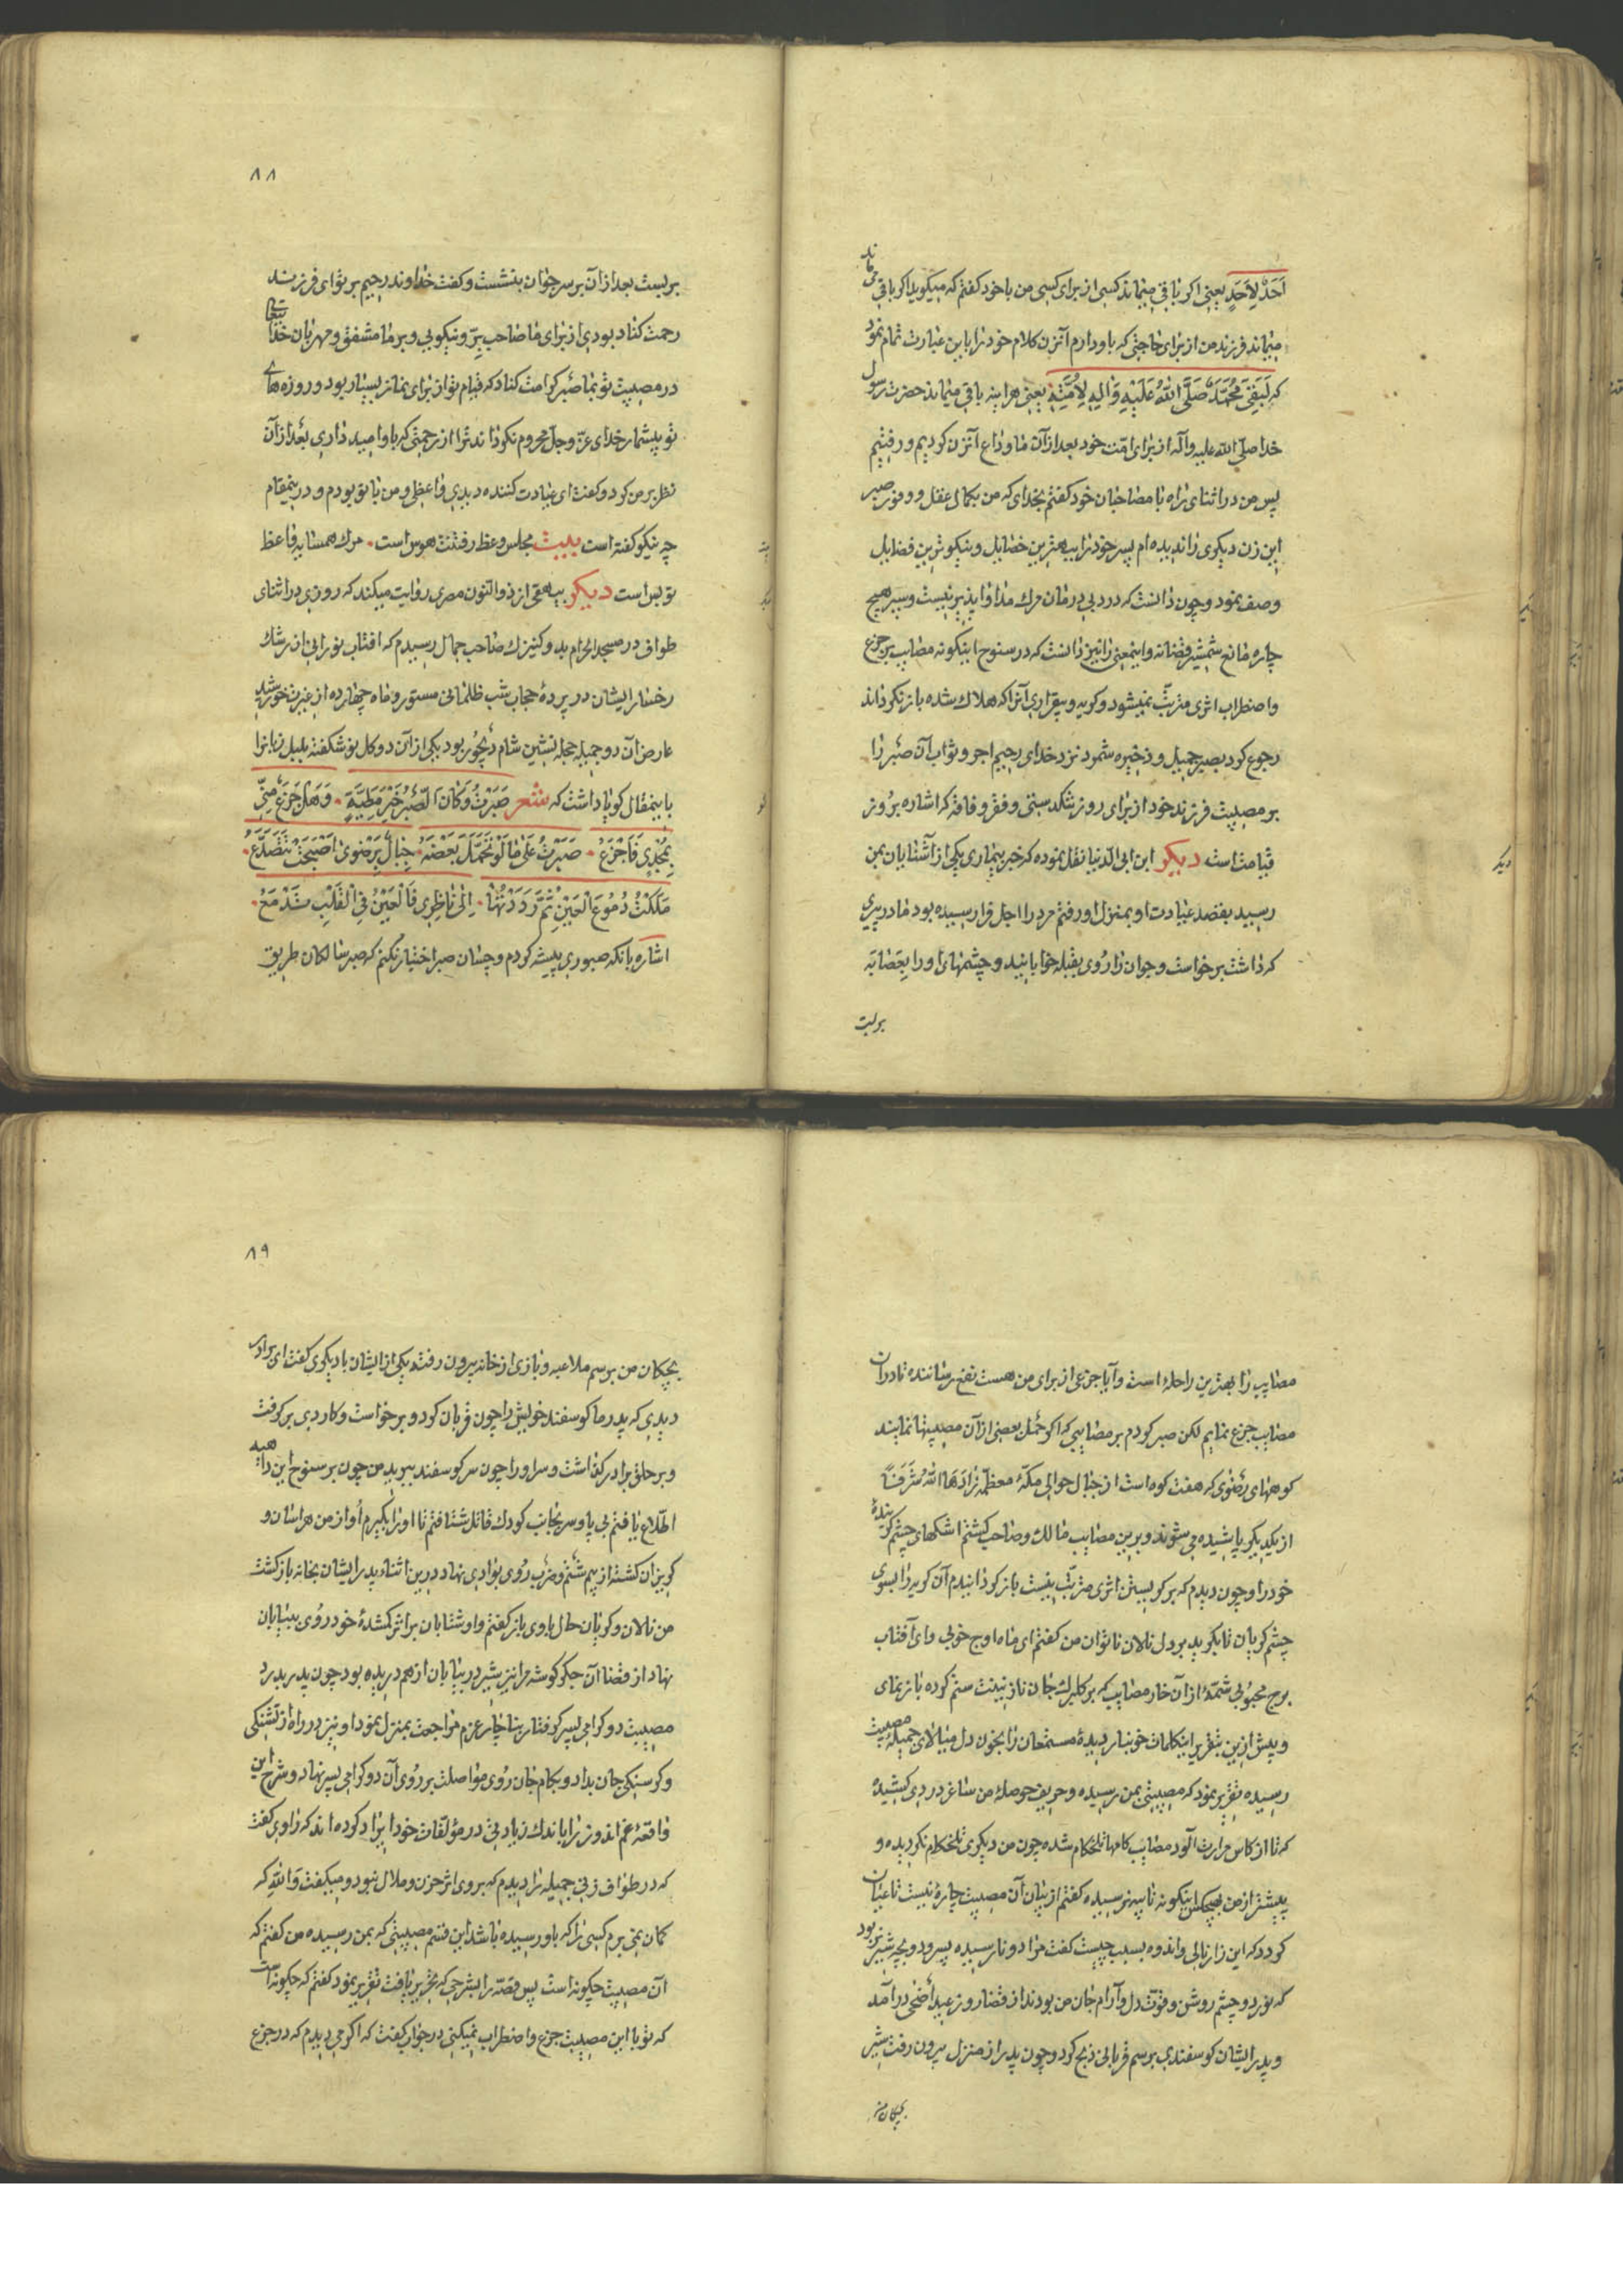 اَحَدٌ لِاَحَدٍ یعنی اکر باقی میماند کسی از برای کسی من با خود کفتم که میکوید اکر باقی می ماند
میماند فرزند من از برای حاجتی که باو دارم آنزن کلام خود را باین عبارت تمام نمود
که لَبَقِیَ مُحَمَّدٌ صَلَّی اللهُ عَلَیْهِ وَآلِهِ لِاُمَّتِهِ یعنی هراینه باقی میماند حضرت رسول
خدا صلّی الله علیه وآله از برای امّت خود بعد از آن ما وداع آنزن کردیم و رفتیم
پس من در اثنای راه با مصاحبان خود کفتم بخدای که من بکمال عقل و وفور صبر
این زن دیکری را ندیده ام پسر خود را ببهترین خصایل و نیکوترین فضایل
وصف نمود و چون دانست که درد بی درمان مرک مداوا پذیر نیست و سپر هیچ
چاره مانع شمشیر قضا نه و اینمعنی را نیز دانست که در سنوح اینکونه مصایب بر جزع
و اضطراب اثری مترتّب نمیشود و کریه و بیقراری آنرا که هلاک شده باز نکرداند
رجوع کرد بصبر جمیل و ذخیره شمرد نزد خدای رحیم اجر و ثواب آن صبر را
بر مصیبت فرزند خود از برای روز تنکدستی و فقر و فاقه که اشاره بروز
قیامت است دیکر ابن ابی الدنیا نقل نموده که خبر بیماری یکی از آشنایان بمن
رسید بقصد عیادت او بمنزل او رفتم مرد را اجل فرا رسیده بود مادر پیری
که داشت برخواست و جوان را روی بقبله خوابانید و چشمهای او را بعصابه
بربست
۸۸
بربست بعد از آن بر سر جوان بنشست و کفت خداوند رحیم بر تو ای فرزند
رحمت کناد بودی از برای ما صاحب برّ و نیکویی و بر ما مشفق و مهربان خدا تعالی
در مصیبت تو بما صبر کرامت کناد که قیام تو از برای نماز بسیار بود و روزه های
تو بیشمار خدای عزّ وجلّ محروم نکرداند ترا از رحمتی که باو امیدداری بعد از آن
نظر بر من کرد و کفت ای عیادت کننده دیدی واعظی و من با تو بودم و درینمقام
چه نیکو کفته است بیت مجلس وعظ رفتنت هوس است . مرک همسایه واعظ
تو بس است دیکر بیهقی از ذوالنون مصری روایت میکند که روزی در اثنای
طواف در مسجد الحرام بدو کنیزک صاحب جمال رسیدم که افتاب نورانی از رشک
رخسار ایشان در پردهٔ حجاب شب ظلمانی مستور و ماه چهارده از غیرت خورشید
عارض آن دو جمیله حجله نشین شام دیجور بود یکی از آن دو کل نو شکفته بلبل زبانرا
باینمقال کویا داشت که شعر صَبَرْتُ وَکَانَ الصَّبْرُ خَیْرَ مَطِیَّةٍ . وَهَلْ جَزَعٌ مِنّی
بِمُجْدٍی فَاَجْزَعُ . صَبَرْتُ عَلیٰ مَا لَوْ تَحَمَّلَ بَعْضَهُ . جِبَالٌ بِرَضْویٰ اَصْبَحَتْ تَتَصَدَّعُ .
مَلَکْتُ دُمُوعَ الْعَیْنِ ثُمَّ رَدَدْتُهَا . اِلیٰ نَاظِرِی فَالْعَیْنُ فِی الْقَلْبِ تَدْمَعُ .
اشاره بانکه صبوری پیشه کردم و چسان صبر اختیار نکنم که صبر سالکان طریق
مصایب را بهترین راحله است و آیا جزعی از برای من هست نفع رساننده تا در آن
مصایب جزع نمایم لکن صبر کردم بر مصایبی که اکر حمل بعضی از آن مصیبتها نمایند
کوههای رضوی که هفت کوه است از جبال حوالی مکّهٔ معظّمه زَادَهَا اللهُ شَرَفًا
از یکدیکر پاشیده می شوند و برین مصایب مالک و صاحب کشتم اشکهای چشم کرینده
خود را و چون دیدم که بر کریستن اثری مترتّب نیست باز کردانیدم آن کریه را بسوی
چشم کریان تا بکرید بر دل نالان ناتوان من کفتم ای ماه اوج خوبی و ای آفتاب
برج محبوبی شمّهٔ از آن خار مصایب که بر کلبرک جان نازنینت ستم کرده باز نمای
و بیش ازین بتقریر اینکلمات خونبار دیدهٔ مستمعان را بخون دل میالای جمیلهٔ مصیبت
رسیده تقریر نمود که مصیبتی بمن رسیده و حریف حوصلهٔ من ساغر دردی کشیده
که تا از کاس مرارت آلود مصایب کامها تلخکام شده چون من دیکری تلخکام نکردیده و
پیشتر از من بهیچکس اینکونه نایبه نرسیده کفتم از بیان آن مصیبت چارهٔ نیست تا عیان
کردد که این زار نالی و اندوه بسبب چیست کفت مرا دو نارسیده پسر و دو بچه شیر نر بود
که نور دو چشم روشن و قوّت دل و آرام جان من بودند از قضا روز عید اضحی درآمد
و پدر ایشان کوسفندی برسم قربانی ذبح کرد و چون پدر از منزل بیرون رفت شیر
بچکان من
۸۹
بچکان من برسم ملاعبه و بازی از خانه بیرون رفتند یکی از ایشان با دیکری کفت ای برادر
دیدی که پدر ما کوسفند خویش را چون قربان کرد و برخواست و کاردی برکرفت
و بر حلق برادر کذاشت و سر او را چون سر کوسفند ببرید من چون بر سنوح این داهیه
اطّلاع یافتم بی پا و سر بجانب کودک قاتل شتافتم تا او را بکیرم او از من هراسان و
کریزان کشته از بیم شتم و ضرب روی بوادی نهاد درین اثناء پدر ایشان بخانه بازکشت
من نالان و کریان حال با وی باز کفتم و او شتابان بر اثر کمشدهٔ خود روی ببیابان
نهاد از قضا آن جکرکوشه مرا نیز شیر در بیابان از هم دریده بود چون پدر بدرد
مصیبت دو کرامی پسر کرفتار بناچار عزم مراجعت بمنزل نمود او نیز در راه از تشنکی
و کرسنکی جان بداد و بکام جان روی مواصلت بر روی آن دو کرامی پسر نهاد و شرح این
واقعهٔ غم اندوز را باندک زیادتی در مؤلّفات خود ایراد کرده اند که راوی کفت
که در طواف زنی جمیله را دیدم که بر وی اثر حزن و ملال نبود و میکفت وَاللهِ که
کمان نمی برم کسی را که باو رسیده باشد این قسم مصیبتی که بمن رسیده من کفتم که
آن مصیبت چکونه است پس قصّه را بشرحی که تحریر یافت تقریر نمود کفتم که چکونه است
که تو با این مصیبت جزع و اضطراب نمیکنی در جواب کفت که اکر می دیدم که در جزع